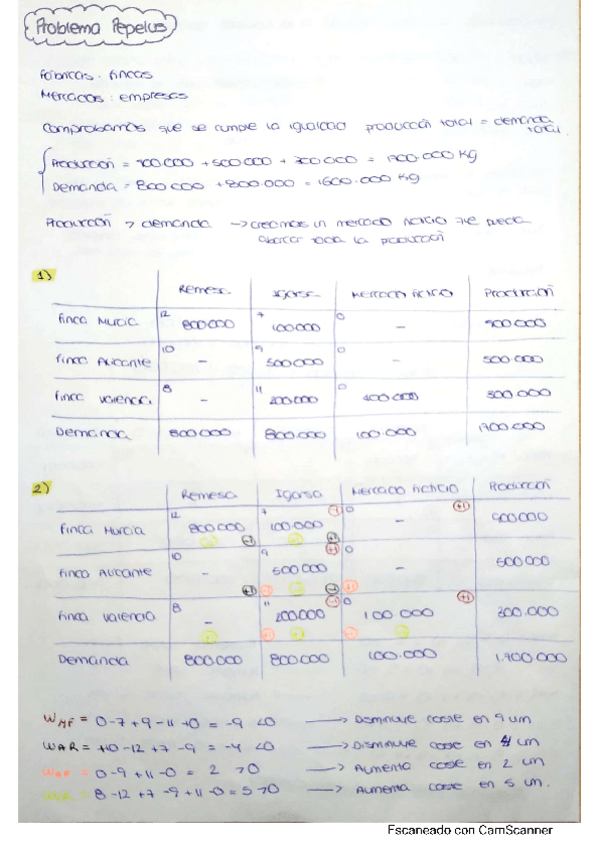 Problema Pepelus
Fábricas: fincas
Mercados: empresas
Comprobamos que se cumple la igualdad producción total = demanda total.
Producción = 900000 + 500000 + 300000 = 1700.000 Kg
Demanda = 800000 + 800.000 = 1600.000 Kg
Producción > demanda → creamos un mercado ficticio que pueda
abarcar toda la producción
1)
Remesa Igarsa Mercado ficticio Producción
Finca Murcia 12 800000 7 100000 0 - 900.000
Finca Alicante 10 - 9 500000 0 - 500.000
Finca Valencia 8 - 11 200000 0 300.000
Demanda 800000 800.000 100.000 1700.000
2)
Remesa Igarsa Mercado ficticio Producción
Finca Murcia 12 800000 7 100000 0 - 900000
Finca Alicante 10 - 9 500000 - 500000
Finca Valencia 8 - 11 200000 0 100 000 300.000
Demanda 800000 800000 100.000 1.900.000
WMF = 0-7+9-11+0 = -9 <0 → Disminuye coste en 9 um
WAR = +10-12+7-9 = -4 <0 → Disminuye coste en 4 um
0-9+11-0 = 2 >0 → Aumenta coste en 2 um
8-12+7-9+11-0 = 5 >0 → Aumenta coste en 5 um.
Escaneado con CamScanner